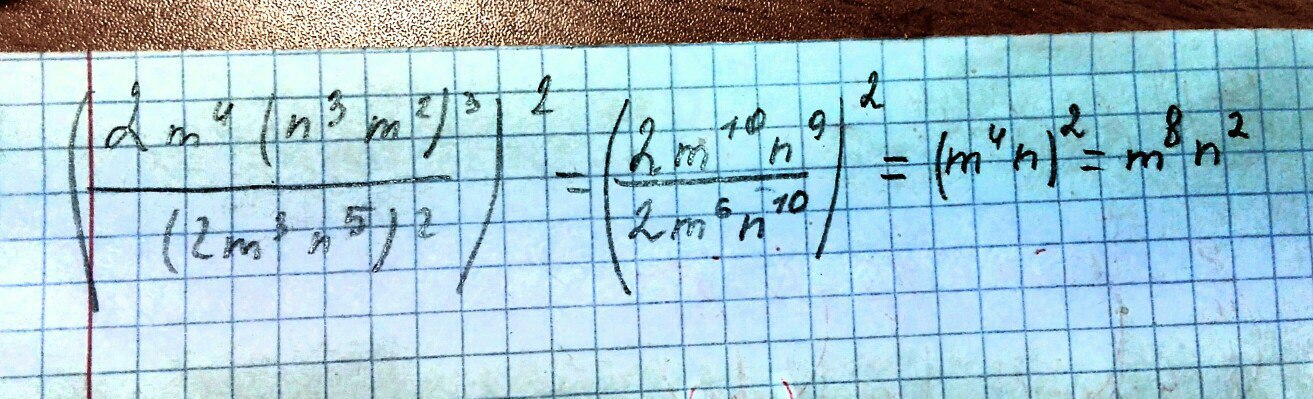 (2m⁴(n³m²)³/(2m³n⁵)²)² = (2m¹⁰n⁹/2m⁶n¹⁰)² = (m⁴n)² = m⁸n²